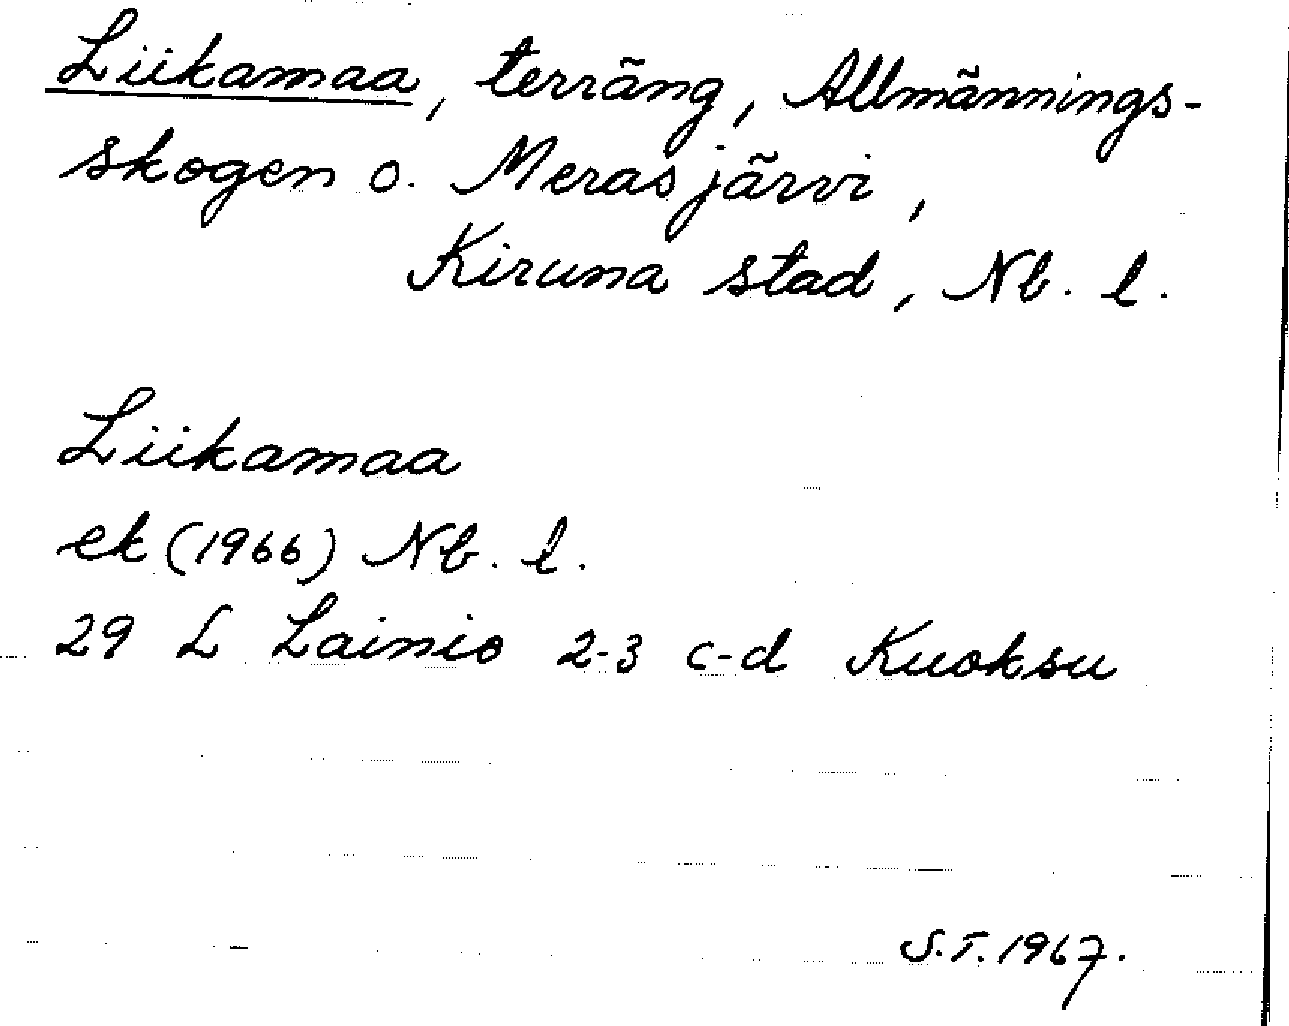 Liikamaa, terräng, Allmännings-
skogen o. Merasjärvi,
Kiruna stad, Nb. l.
Liikamaa
ek (1966) Nb. l.
29 L Lainio 2-3 c-d Kuoksu
S.T. 1967.